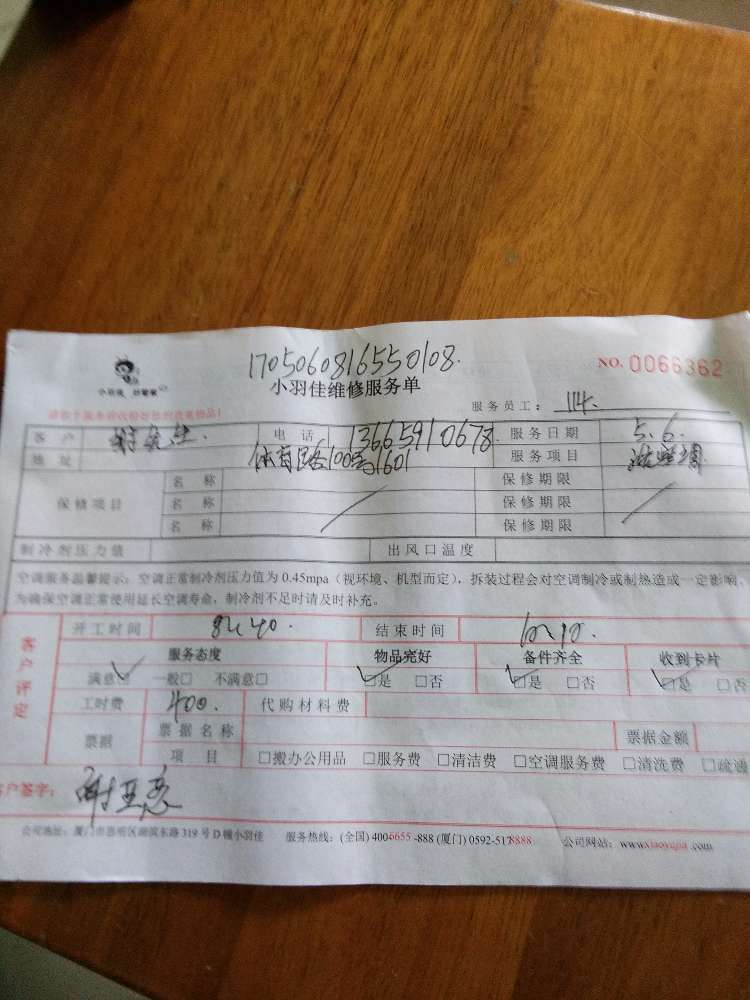 17050608165550108.
小羽佳 好管家
小羽佳维修服务单
NO. 0066362
服务员工: 114.
客户 谢先生. 电话 13665910678 服务日期 5.6.
地址 体育路100号1601 服务项目
保修项目 名称 保修期限
名称 保修期限
名称 保修期限
制冷剂压力值 出风口温度
空调服务温馨提示:空调正常制冷剂压力值为 0.45mpa(视环境、机型而定),拆装过程会对空调制冷或制热造成一定影响,
为确保空调正常使用延长空调寿命,制冷剂不足时请及时补充。
客户评定
开工时间 8:40. 结束时间 10:10.
服务态度 物品完好 备件齐全 收到卡片
满意□ 一般□ 不满意□ □是 □否 □是 □否 □是 □否
工时费 400. 代购材料费
票据 票据名称 票据金额
项目 □搬办公用品 □服务费 □清洁费 □空调服务费 □清洗费 □疏通
客户签字:
公司地址:厦门市思明区湖滨东路 319 号 D 幢小羽佳 服务热线:(全国) 4006655-888 (厦门) 0592-5178888 公司网站:www.xiaoyujia.com